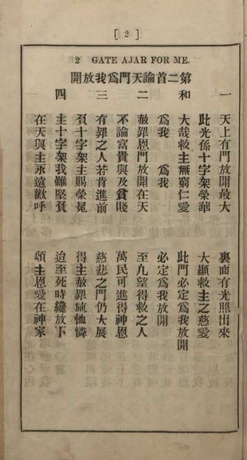 [ 2 ]
2 GATE AJAR FOR ME.
第二首論天門爲我放開
一 天上有門放開最大 裏面有光照出來
此光係十字架榮華 大顯救主之慈愛
和 大哉救主無窮仁愛 此門必定爲我放開
爲我 爲我 必定爲我放開
二 赦罪恩門放開在天 至凡望得救之人
不論富貴與及貧賤 萬民可進得神恩
三 有罪之人若肯進前 慈悲之門仍大展
負十字架主賜榮冕 得主赦罪施憐憫
四 主十字架我雖堅負 迨至死時纔放下
在天與主永遠歡呼 頌主恩愛在神家